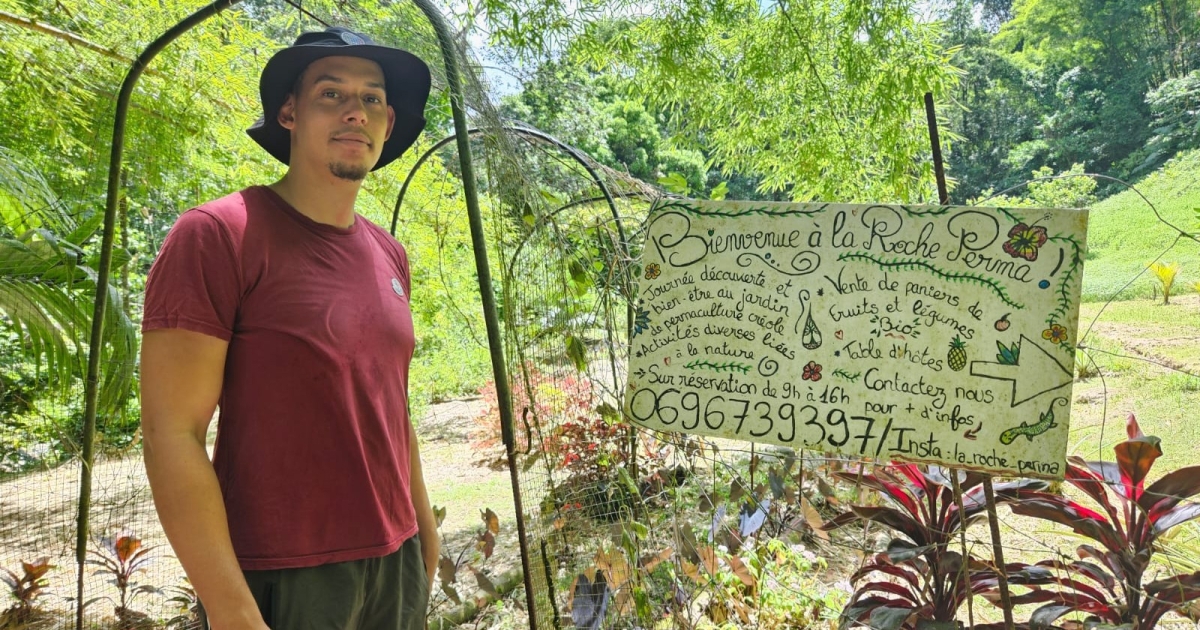 Bienvenue à la Roche Perma !
Journée découverte et
bien-être au jardin
de permaculture créole
Activités diverses liées
à la nature
Sur réservation de 9h à 16h
0696739397/
Vente de paniers de
fruits et légumes
"Bio"
Table d'hôtes
Contactez nous
pour + d'infos
Insta : la_roche_perma